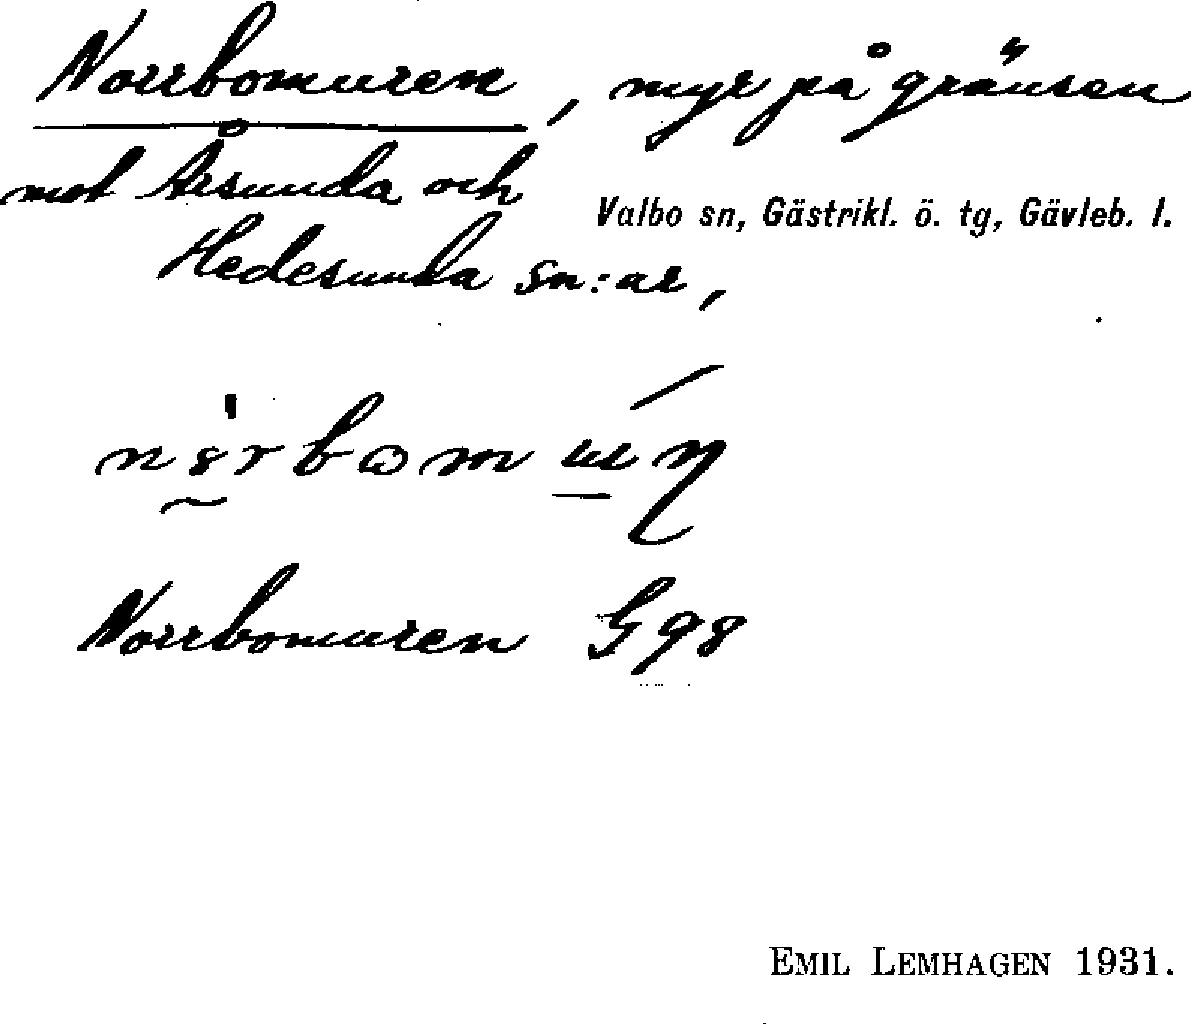 Norrbomuren, myr på gränsen
mot Årsunda och
Valbo sn, Gästrikl. ö. tg, Gävleb. l.
Hedesunda sn:ar,
Norrbomuren G98
EMIL LEMHAGEN 1931.